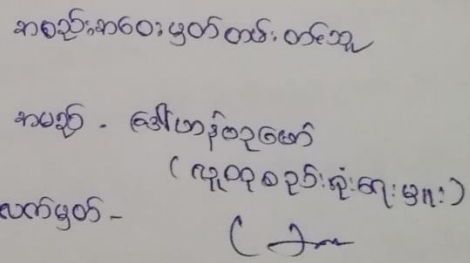 အစည်းအဝေးမှတ်တမ်းတင်သူ
အမည် - ဒေါ်ဟန်
(လူထုစည်းရုံးရေးမှူး)
လက်မှတ် -